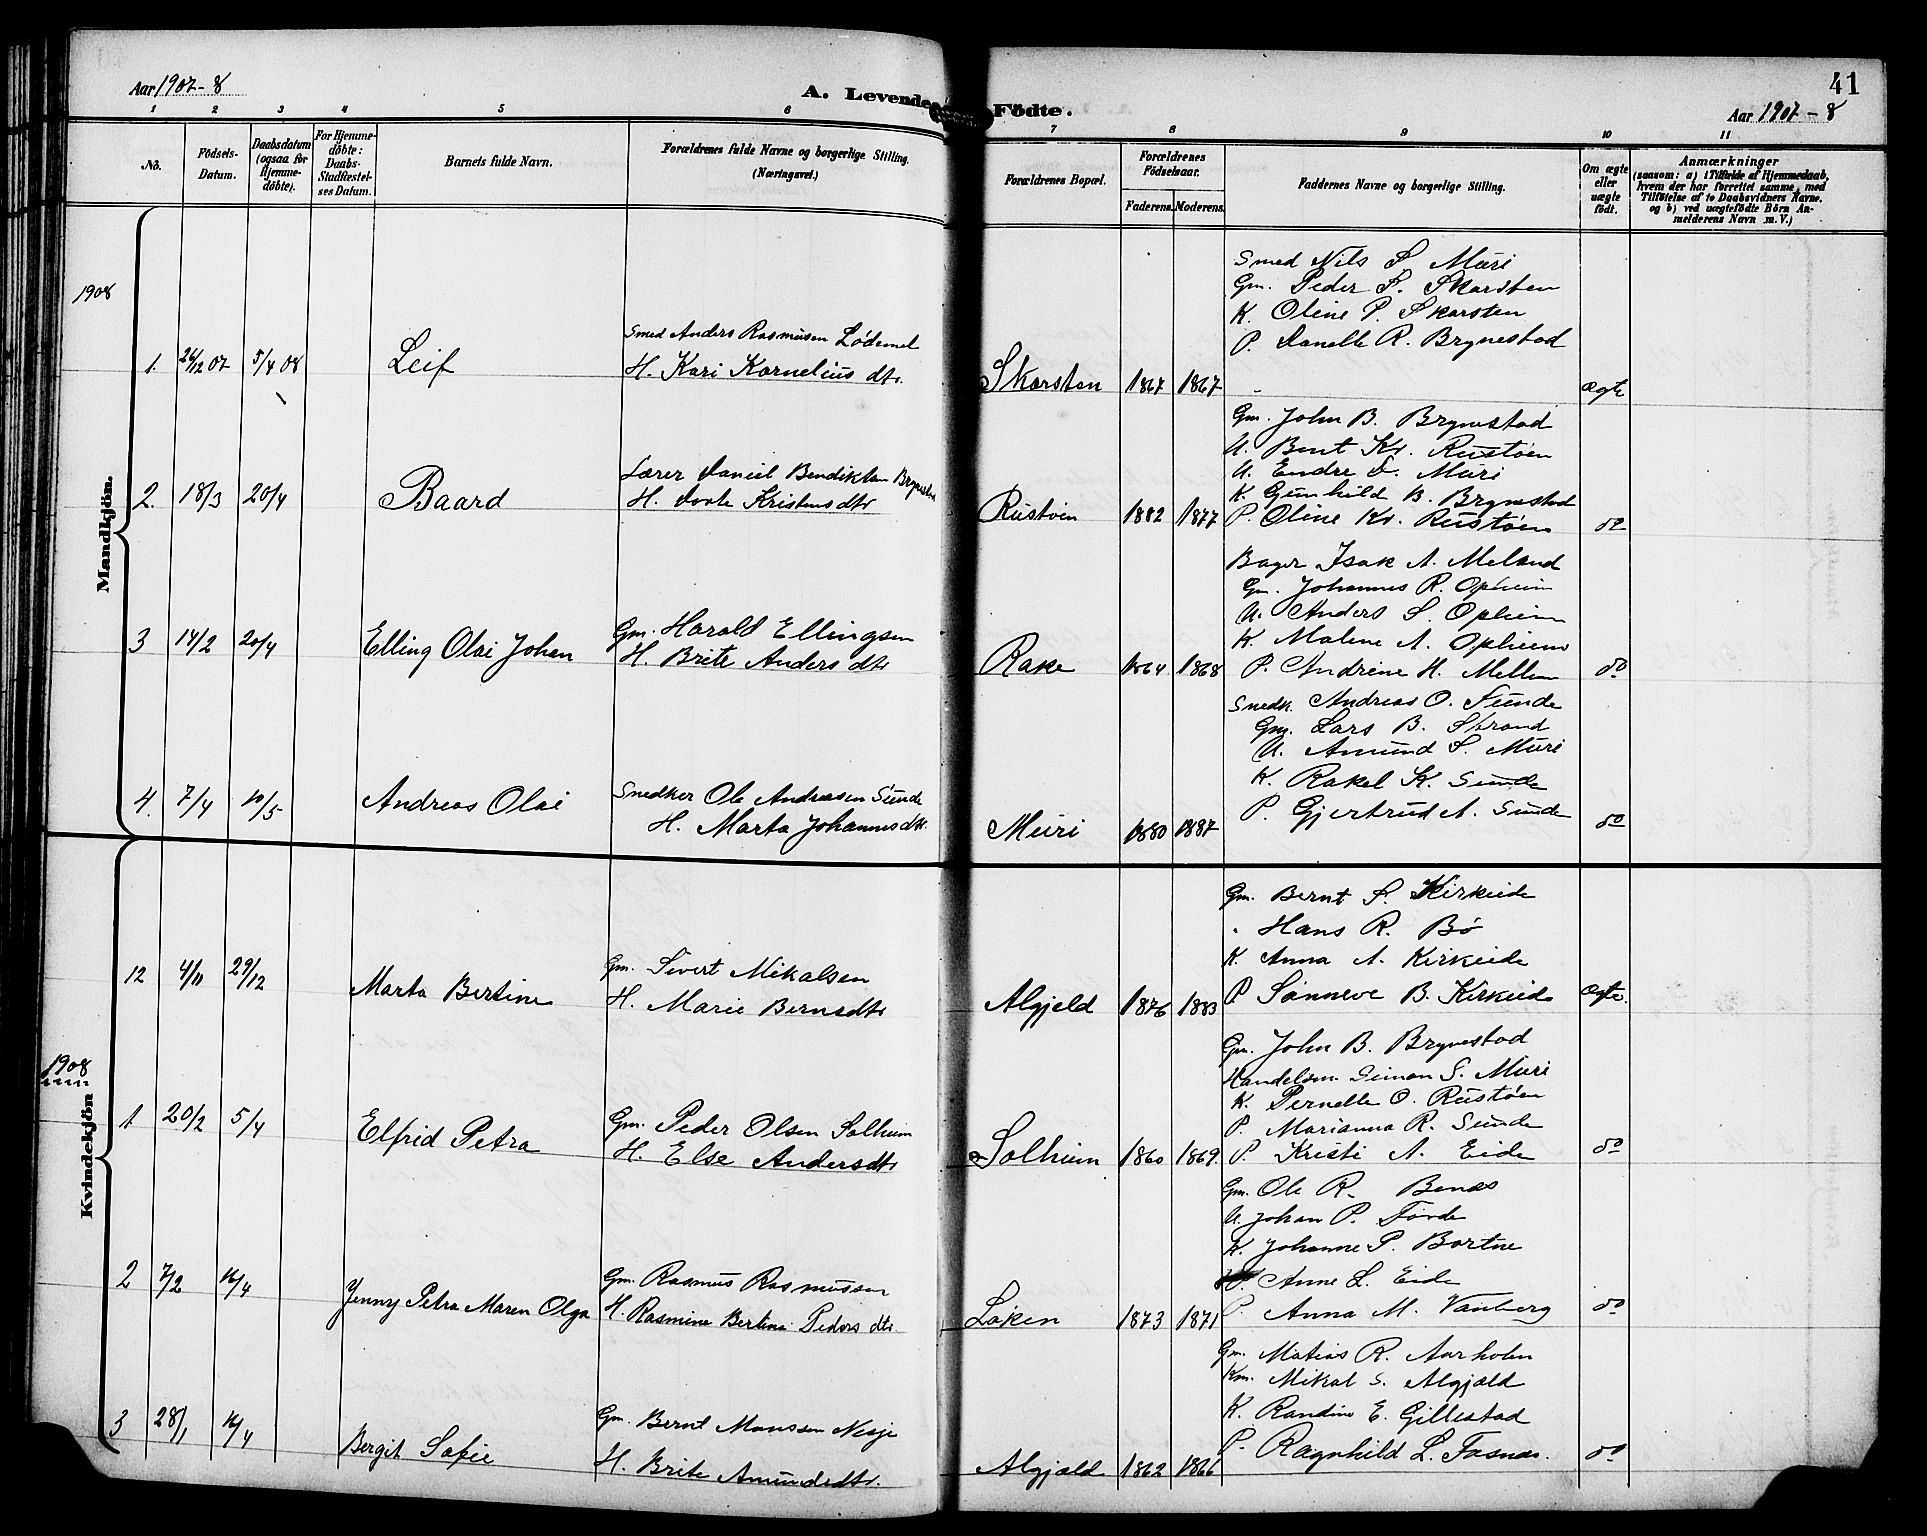 Aar 1907-8
A. Levende Födte.
41
Aar 1907-8
1 2 3 4 5 6 7 8 9 10 11
No.
Födsels-
Datum.
Daabsdatum
(ogsaa for
Hjemme-
döbte).
For Hjemme-
döbte:
Daabs-
Stadfæstel-
ses Datum.
Barnets fulde Navn.
Forældrenes fulde Navne og borgerlige Stilling.
(Næringsvei.)
Forældrenes Bopæl.
Forældrenes
Födselsaar.
Faderens. Moderens.
Faddernes Navne og borgerlige Stilling.
Om ægte
eller
uægte
födt.
Anmærkninger
(saasom: a) i Tilfælde af Hjemmedaab,
hvem der har forrettet samme, med
Tilföielse af to Daabsvidners Navne,
og b) ved uægtefödte Börn An-
melderens Navn m. V.)
Mandkjön.
1908
Smed Nils S Muri
Gm. Peder S. Skarsten
K. Oline P. Skarsten
P. Danelle R. Brynestad
Smed Anders Rasmusen Lødemel
1. 26/12 07 5/4 08 Leif H. Kari Kornelius dtr. Skarsten 1867 1867 ægte
Gm. John B. Brynestad
U. Bent Kr. Rustøen
U. Endre D. Muri
K. Gunhild B. Brynestad
P. Oline Kr. Rustøen
Lærer Daniel Bendiktsen Brynestad
2. 18/3 20/4 Baard H. Dorte Kristensdtr Rustøen 1882 1877 do
Bager Isak A. Meland
Gm. Johannes R. Opheim
U. Anders S. Opheim
K. Malene A. Opheim
P. Andrine H. Mellem
Gm. Harald Ellingsen
3 14/2 20/4 Elling Olai Johan H. Brite Anders dtr Rake 1864 1868 do
Snedk. Andreas O. Sunde
Gm. Lars B. Strand
U. Amund S. Muri
K. Rakel K. Sunde
P. Gjertrud A. Sunde
Snedker Ole Andreasen Sunde
4. 7/4 10/5 Andreas Olai H. Marta Johannesdtr. Muri 1880 1887 do
Kvindekjön
Gm. Bernt S. Kirkeide
" Hans R. Bø
K. Anna A. Kirkeide
P Sønneve B. Kirkeide
Gm. Sivert Mikalsen
12 4/11 29/12 Marta Bertine H. Marie Bernsdtr Algjeld 1876 1883 ægte.
1908
Gm. John B. Brynestad
Handelsm. Simon S. Muri
K. Pernelle O. Rustøen
P. Marianna R. Sunde
P. Kristi A. Eide
Gm. Peder Olsen Solheim
1 20/2 5/4 Elfrid Petra H. Else Andersdtr Solheim 1860 1869. do
Gm. Ole R. Benes
U Johan P. Førde
K. Johanne P. Bortne
Anne L. Eide
P. Anna M. Vanberg
Gm. Rasmus Rasmussen
2 7/2 16/4 Jenny Petra Maren Olga H. Rasmine Bertine Peders dtr Løken 1873 1871 do
Gm. Matias R. Aarholen
Km. Mikal S. Algjæld
K. Randine E. Gillestad
P. Ragnhild L. Fosnes.
Gm. Bernt Monssen Nesje
3 28/1 16/4 Bergit Sofie H. Brite Amundsdtr. Algjæld 1862 1866 do